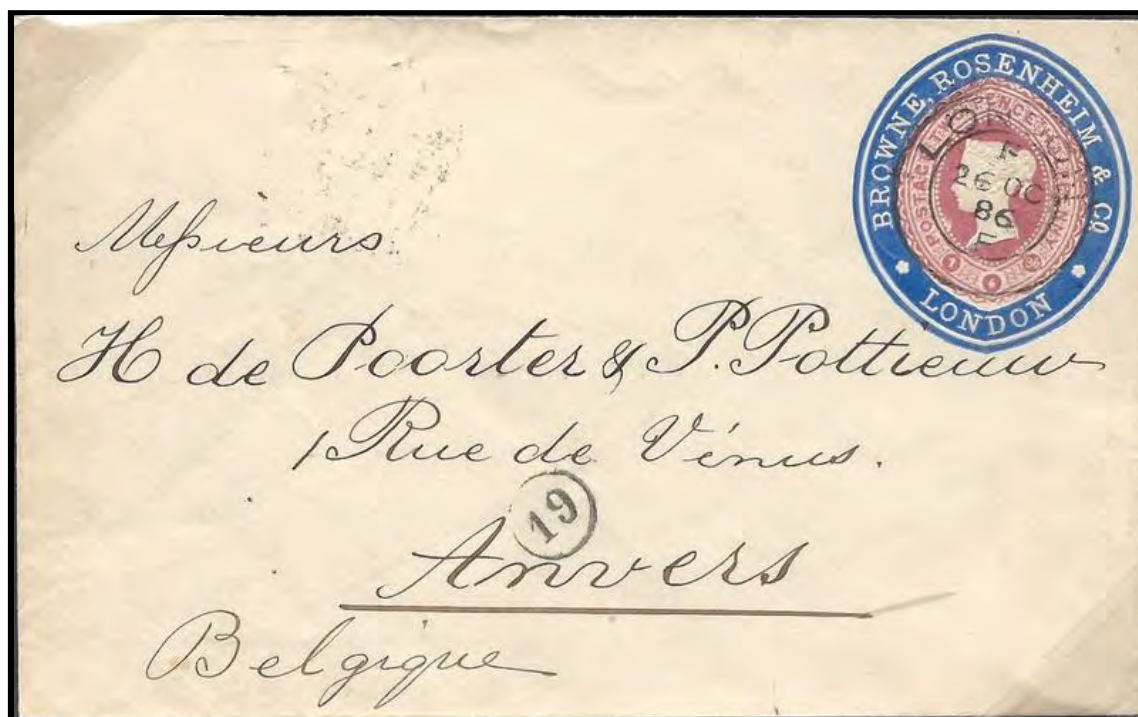 BROWNE, ROSENHEIM & Co.
LONDON
POSTAGE PENCE
LON
F
26 OC
86
Messieurs
H de Poorter & P. Pottieuw
1 Rue de Vénus.
19
Anvers
Belgique